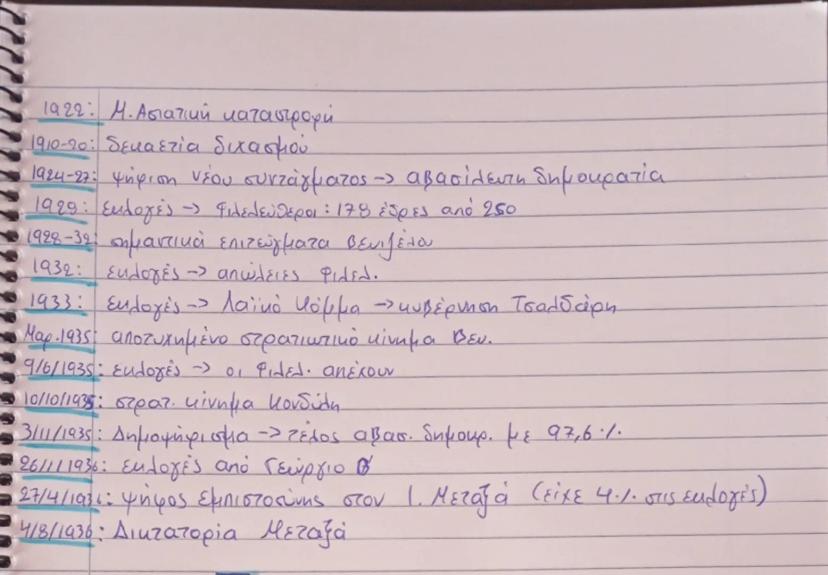 1922: Μ. Ασιατική καταστροφή
1910-20: δεκαετία διχασμού
1924-27: ψήφιση νέου συντάγματος -> αβασίλευτη δημοκρατία
1928: εκλογές -> Φιλελεύθεροι: 178 έδρες από 250
1928-32: σημαντικά επιτεύγματα Βενιζέλου
1932: εκλογές -> απώλειες Φιλελ.
1933: εκλογές -> Λαϊκό Κόμμα -> κυβέρνηση Τσαλδάρη
Μαρ. 1935: αποτυχημένο στρατιωτικό κίνημα Βεν.
9/6/1935: εκλογές -> οι Φιλελ. απέχουν
10/10/1935: στρατ. κίνημα Κονδύλη
3/11/1935: Δημοψήφισμα -> τέλος αβασ. δημοκρ. με 97,6%
26/1/1936: εκλογές από Γεώργιο Β'
27/4/1936: ψήφος εμπιστοσύνης στον Ι. Μεταξά (είχε 4% στις εκλογές)
4/8/1936: Δικτατορία Μεταξά